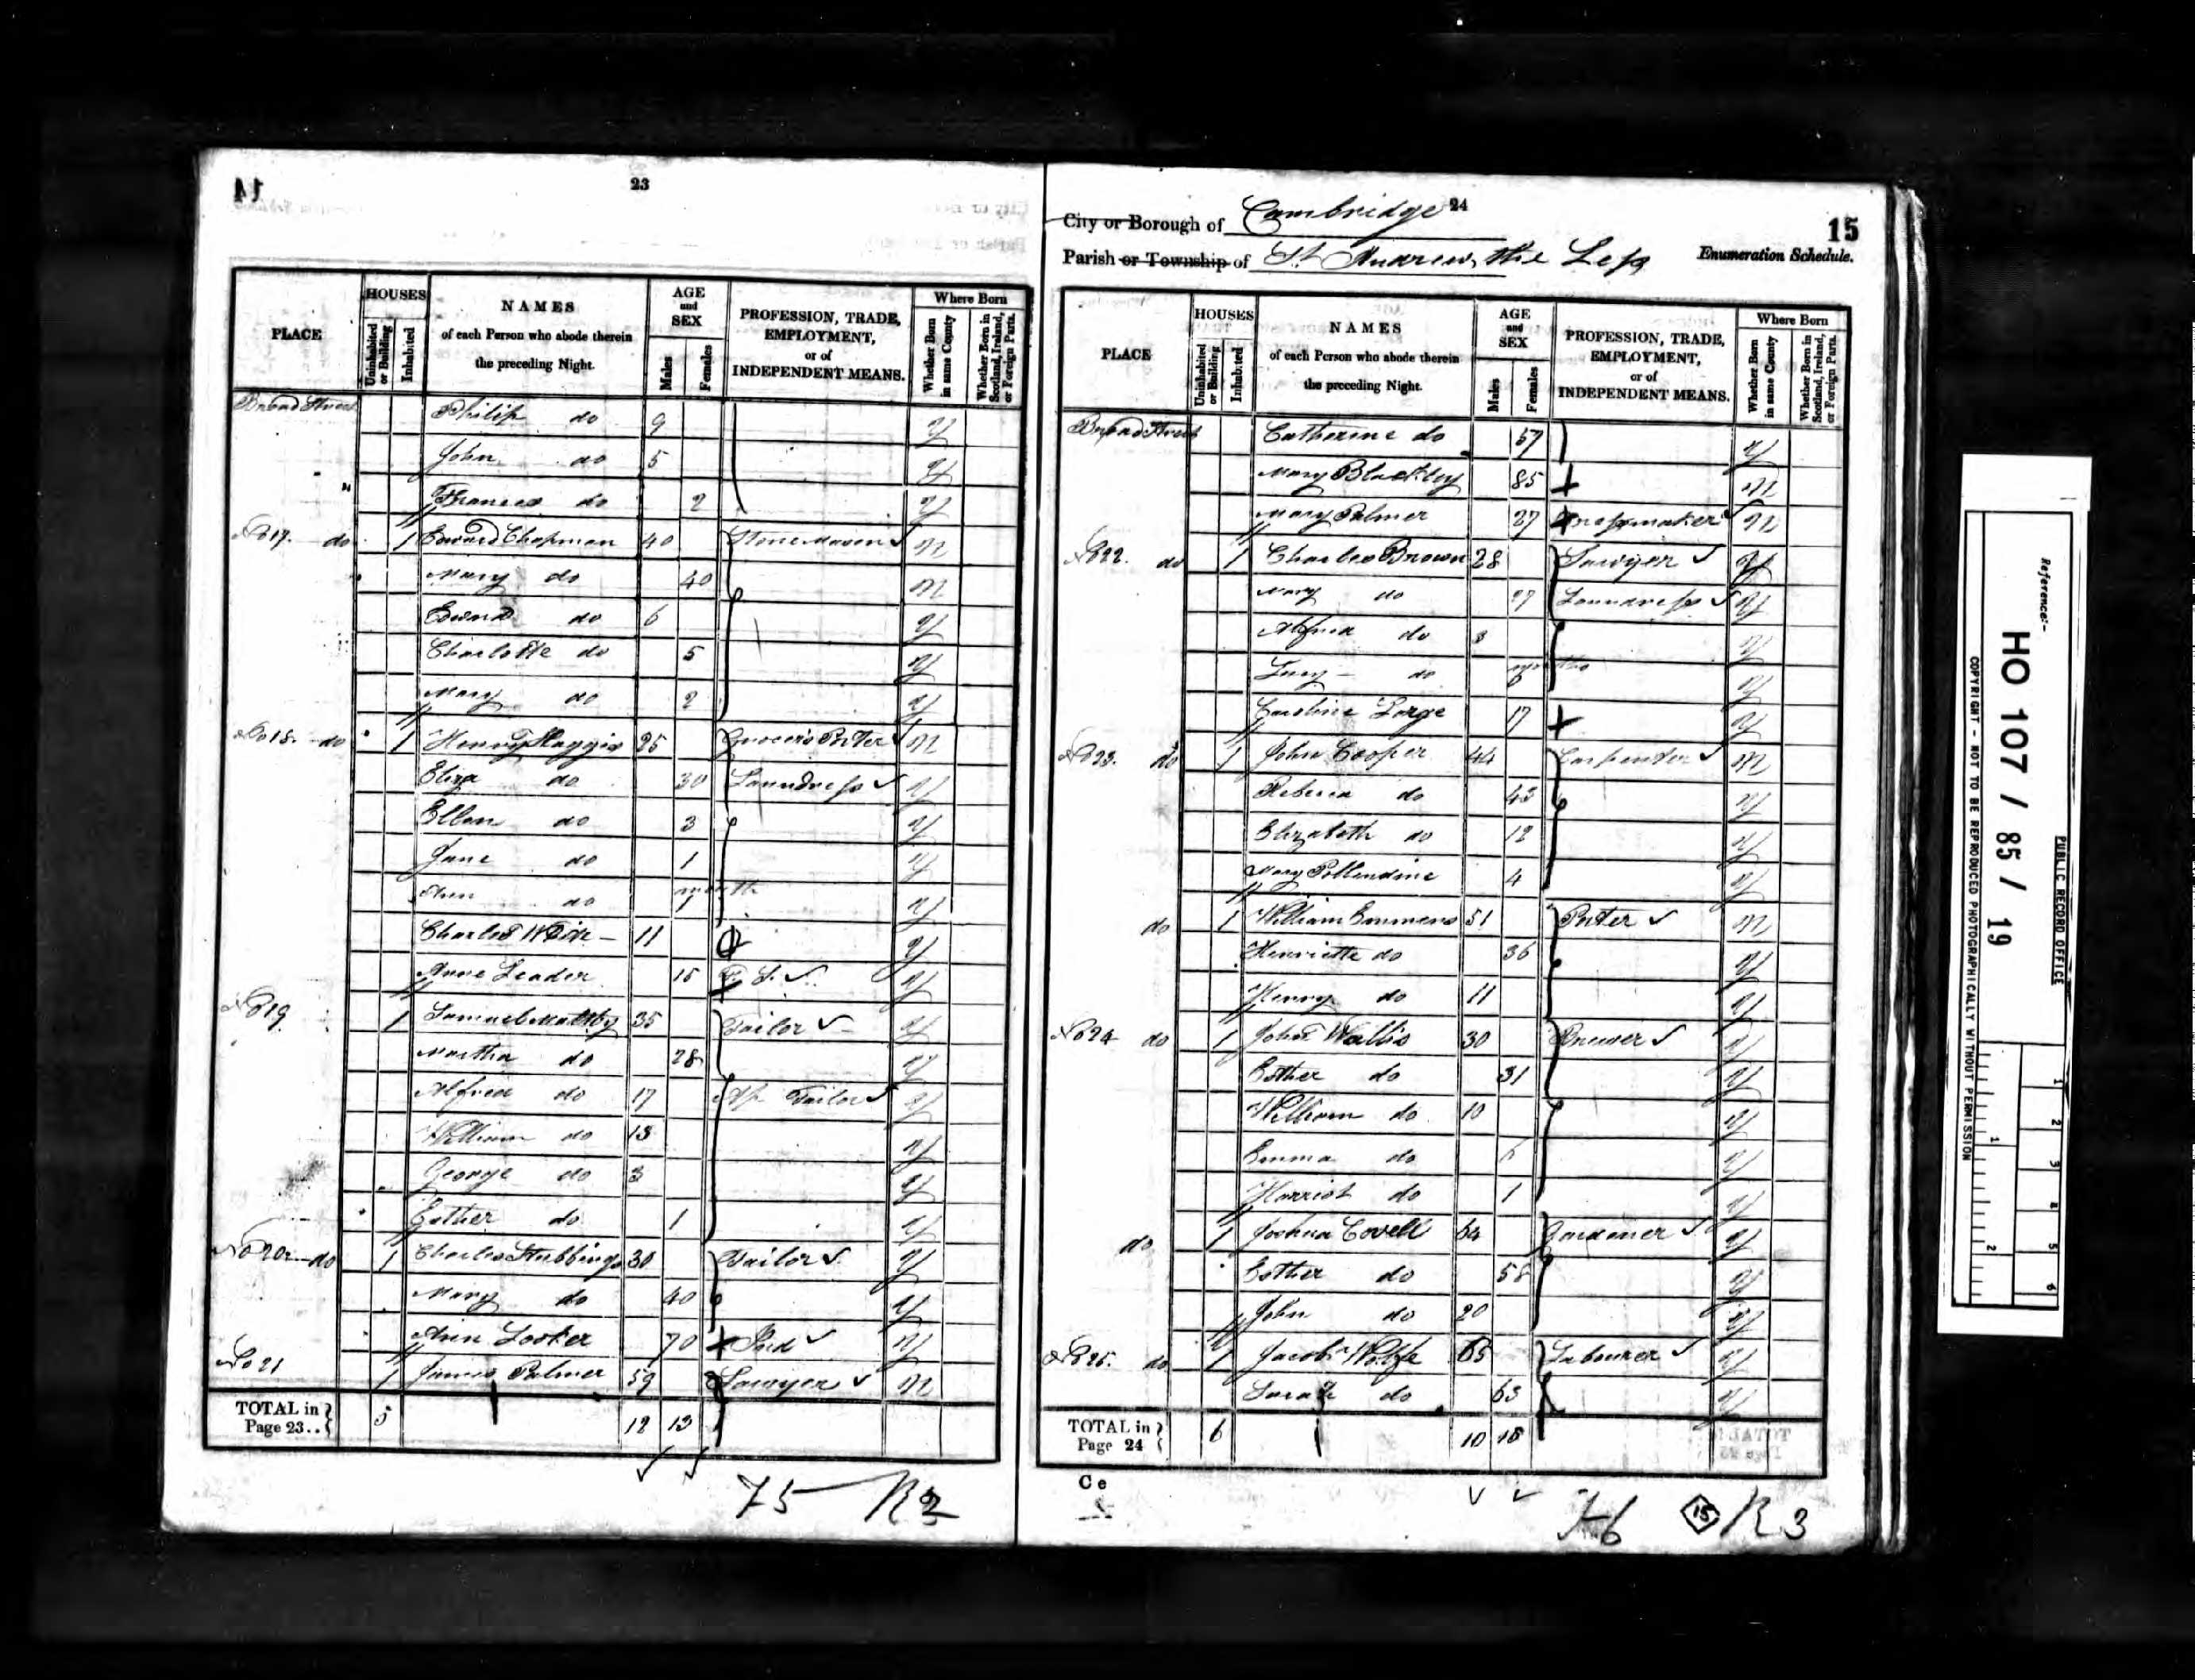 14
23
PLACE
HOUSES
Uninhabited or Building
Inhabited
NAMES
of each Person who abode therein
the preceding Night.
AGE
and
SEX
Males
Females
PROFESSION, TRADE,
EMPLOYMENT,
or of
INDEPENDENT MEANS.
Where Born
Whether Born in same County
Whether Born in Scotland, Ireland, or Foreign Parts.
Broad Street Philip do 9 y
John do 5 y
Frances do 2 y
No 17. do 1 Edward Chapman 40 Stone Mason N
Mary do 40 N
Edward do 6 y
Charlotte do 5 y
Mary do 2 y
No 18. do 1 Henry Haggis 25 Grocer's Porter N
Eliza do 30 Laundress y
Ellen do 3 y
Jane do 1 y
Ann do 1 month y
Charles 11 y
Anne Leader 15 F. S. y
No 19 1 Samuel Maltby 35 Tailor y
Martha do 28 y
Alfred do 17 Ap Tailor y
William do 13 y
George do 3 y
Esther do 1 y
No 20 do 1 Charles Stubbings 30 Tailor y
Mary do 40 y
Ann Looker 70 Ind y
No 21 1 James Palmer 59 Sawyer N
TOTAL in Page 23.. 5 12 13
75 R2
24
15
City or Borough of Cambridge
Parish or Township of St Andrew the Less
Enumeration Schedule.
PLACE
HOUSES
Uninhabited or Building
Inhabited
NAMES
of each Person who abode therein
the preceding Night.
AGE
and
SEX
Males
Females
PROFESSION, TRADE,
EMPLOYMENT,
or of
INDEPENDENT MEANS.
Where Born
Whether Born in same County
Whether Born in Scotland, Ireland, or Foreign Parts.
Broad Street Catherine do 57 y
Mary Blackley 85 N
Mary Palmer 27 Dressmaker N
No 22. do 1 Charles Brown 28 Sawyer y
Mary do 27 Laundress y
Alfred do 3 y
Lucy do months y
Caroline Large 17 y
No 23. do 1 John Cooper 44 Carpenter N
Rebecca do 43 y
Elizabeth do 12 y
Mary Pollendine 4 y
do 1 William Emmens 51 Porter N
Henriette do 36 y
Henry do 11 y
No 24 do 1 John Wallis 30 Brewer y
Esther do 31 y
William do 10 y
Emma do y
Harriot do 1 y
do 1 Joshua Covell 64 Gardener y
Esther do 58 y
John do 20 y
No 25. do 1 Jacob Wolfe 65 Labourer y
Sarah do 63 y
TOTAL in Page 24 6 10 15
C e
76 15 R 3
Reference:-
HO 107 / 85 / 19
PUBLIC RECORD OFFICE
COPYRIGHT - NOT TO BE REPRODUCED PHOTOGRAPHICALLY WITHOUT PERMISSION
1 2 3 4 5 6
1 2